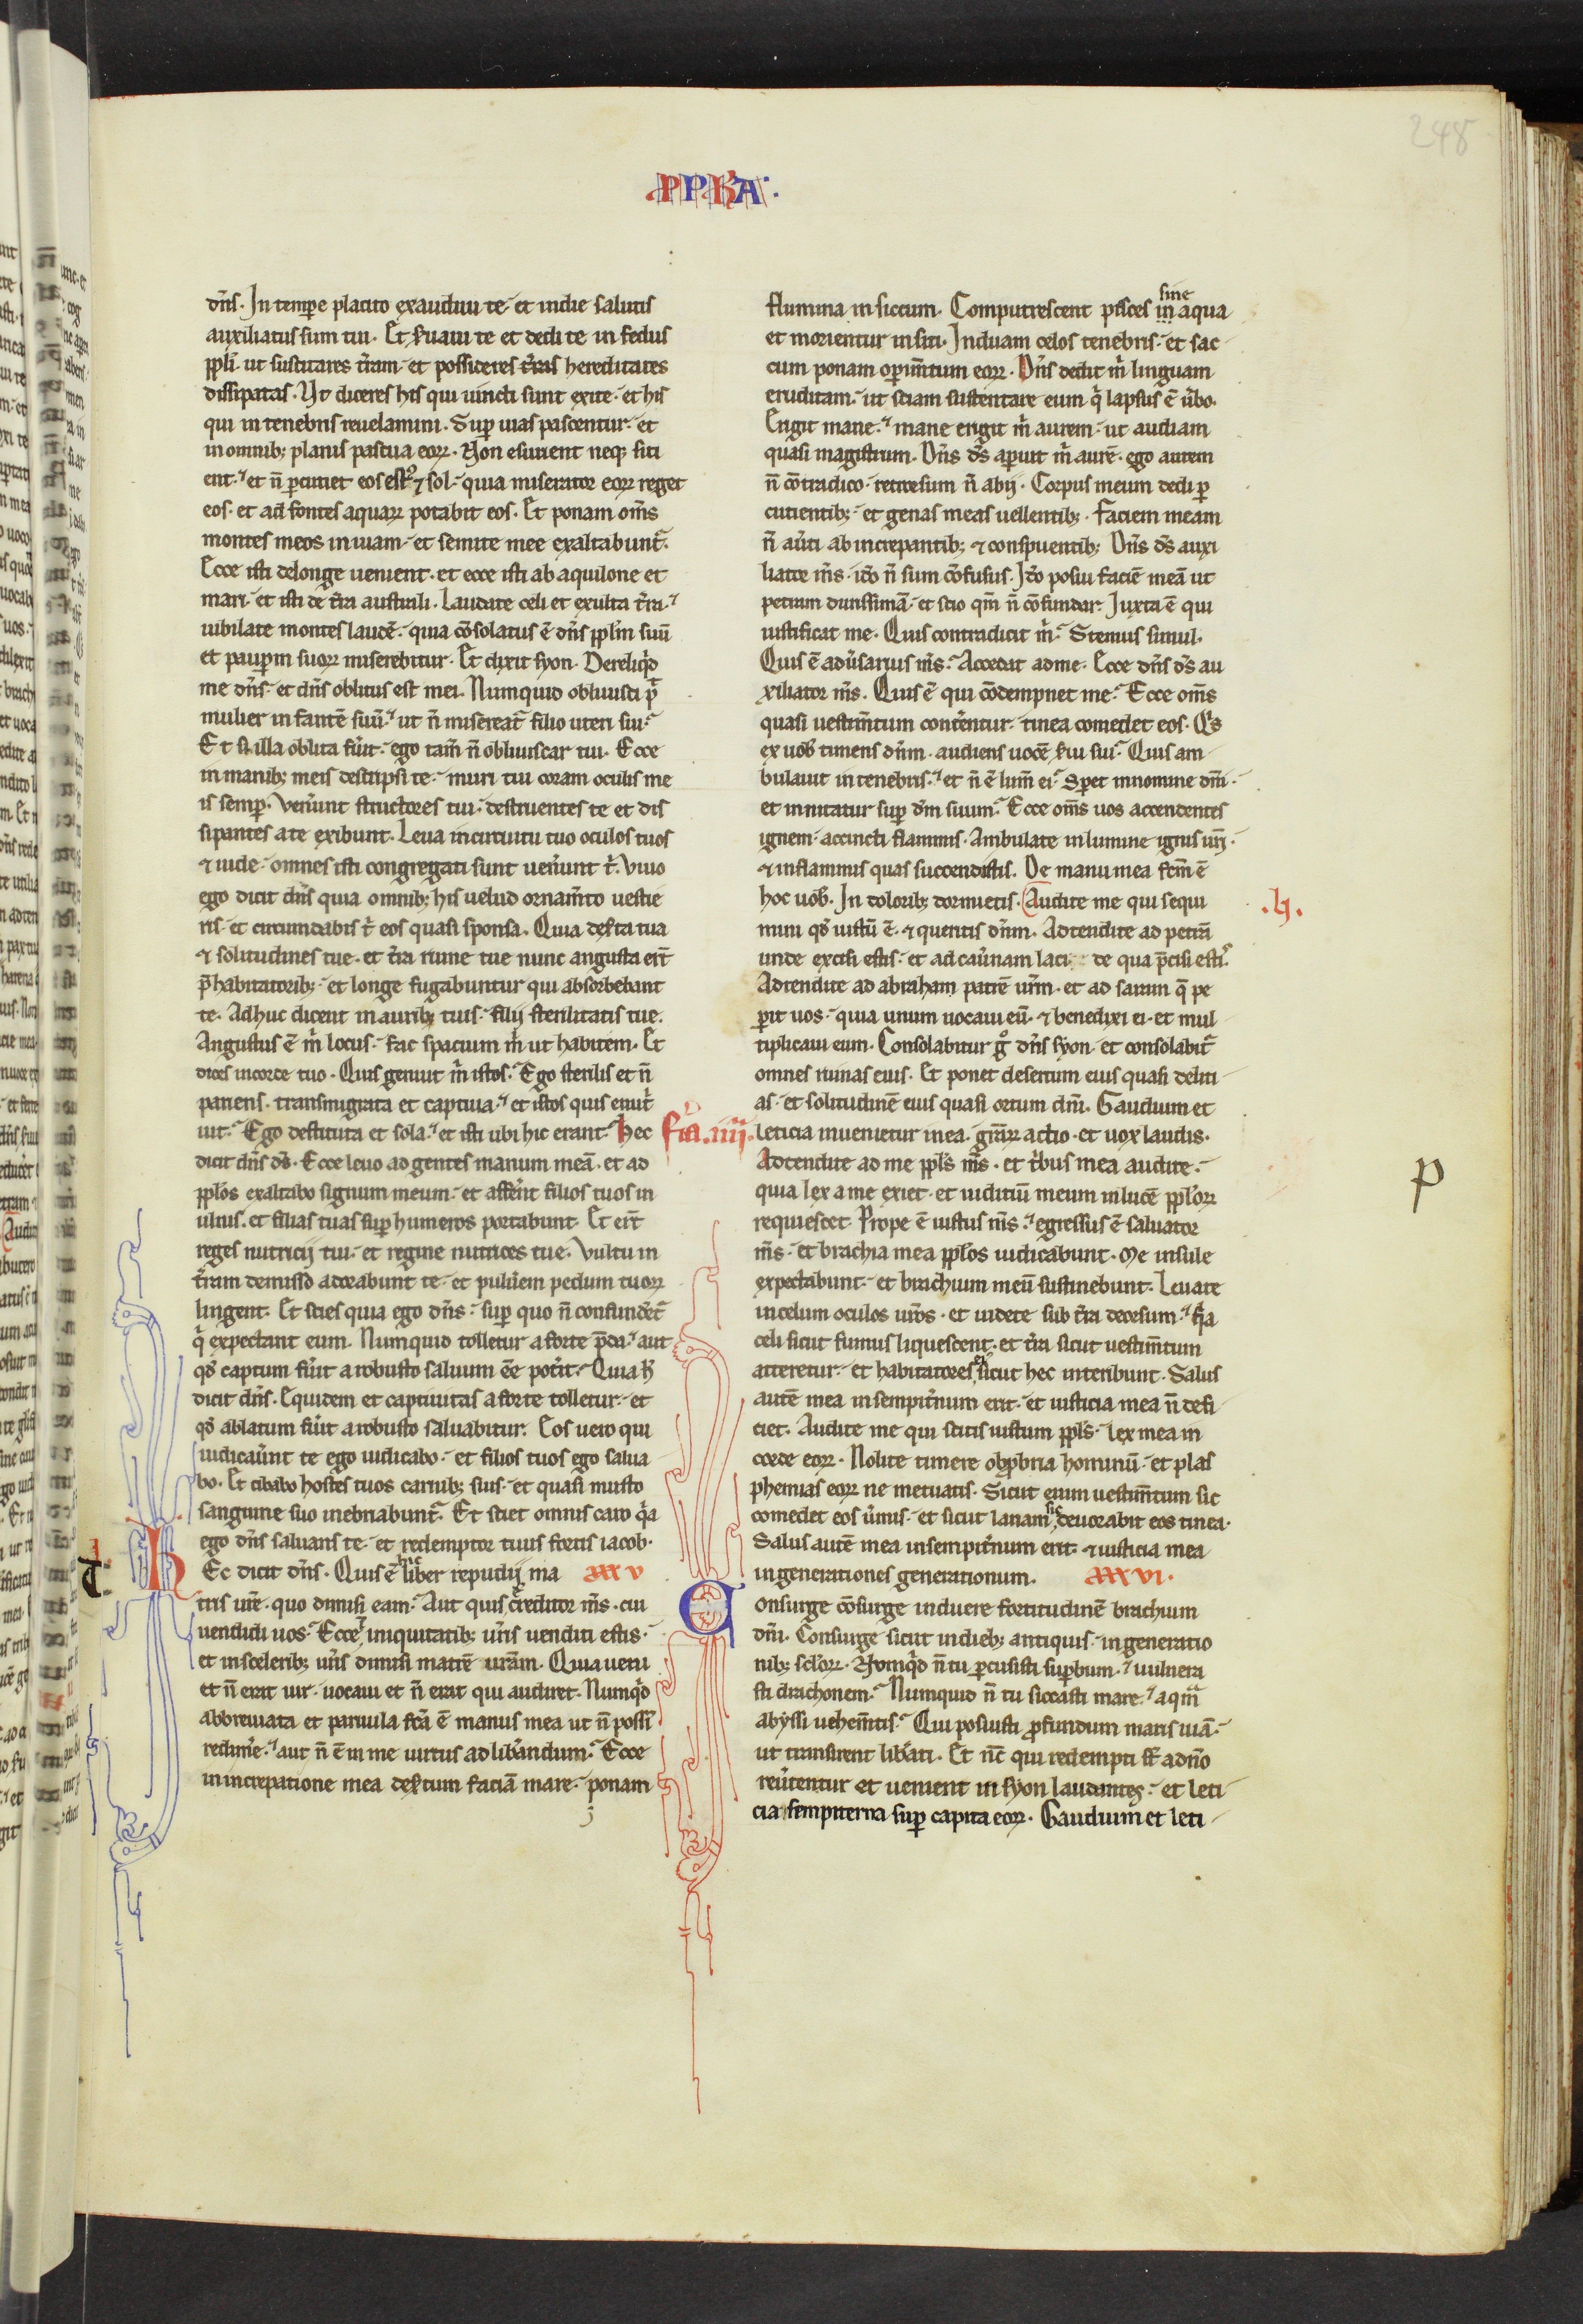 248
PPHA
dn̄s. In tempore placito exaudiui te. et in die salutis
auxiliatus sum tui. Et s̉uaui te et dedi te in fedus
ppl̄i. ut suscitares t̄ram. et possideres t̄ras hereditates
dissipatas. Ut diceres his qui uincti sunt exite. et his
qui in tenebris reuelamini. Suꝑ uias pascentur. et
in omnibꝫ planis pascua eoꝝ. Non esurient neqꝫ siti
ent. et n̄ ꝑcutiet eos estꝰ ⁊ sol. quia miserator eoꝝ reget
eos. et ad fontes aquaꝝ potabit eos. Et ponam om̄s
montes meos in uiam. et semite mee exaltabunt᷑.
Ecce isti de longe uenient. et ecce isti ab aquilone et
mari. et isti de t̄ra australi. Laudate celi et exulta t̄ra.
iubilate montes laudē. quia cōsolatus ē dn̄s ppl̄m suū
et paupꝝ suoꝝ miserebitur. Et dixit syon. Dereliqͥd
me dn̄s. et dn̄s oblitus est mei. Numquid obliuisci pͭ
mulier infantē suū. ut n̄ misereat᷑ filio uteri sui.
Et si illa oblita fu̓it. ego tam̄ n̄ obliuiscar tui. Ecce
in manibꝫ meis descripsi te. muri tui coram oculis me
is semꝑ. Ven̓unt structores tui. destruentes te et dis
sipantes a te exibunt. Leua in circuitu tuo oculos tuos
⁊ uide. omnes isti congregati sunt uen̓unt tͥ. Viuo
ego dicit dn̄s quia omnibꝫ his uelud ornam̄to uestie
ris. et circumdabis tͥ eos quasi sponsa. Quia des̓ta tua
⁊ solitudines tue. et t̄ra ruine tue nunc angusta er̄t
p̄ habitatoribꝫ. et longe fugabuntur qui absorbebant
te. Adhuc dicent in auribꝫ tuis. filij sterilitatis tue.
Angustus ē mͥ locus. fac spacium mͥ ut habitem. Et
dices in corde tuo. Quis genuit mͥ istos. Ego sterilis et n̄
pariens. transmigrata et captiua. et istos quis enut̓
iuit. Ego destituta et sola. et isti ubi hic erant. Hec
dicit dn̄s ds̄. Ecce leuo ad gentes manum meā. et ad
ppl̄os exaltabo signum meum. et affer̄nt filios tuos in
ulnis. et filias tuas suꝑ humeros portabunt. Et er̄t
reges nutricij tui. et regine nutrices tue. Vultu in
t̄ram demisso adorabunt te. et pulu̓em pedum tuoꝝ
lingent. Et scies quia ego dn̄s. suꝑ quo n̄ confundēt᷑
qͥ expectant eum. Numquid tolletur a forte p̄da. aut
qd̓ captum fu̓it a robusto saluum ēe pot̓it. Quia h̓
dicit dn̄s. Equidem et captiuitas a forte tolletur. et
qd̓ ablatum fu̓it a robusto saluabitur. Eos uero qui
iudicau̓nt te ego iudicabo. et filios tuos ego salua
bo. Et cibabo hostes tuos carnibꝫ suis. et quasi musto
sanguine suo inebriabunt᷑. Et sciet omnis caro qͥa
ego dn̄s saluans te. et redemptor tuus fortis iacob.
Hec dicit dn̄s. Quis ē hic liber repudij ma XXXV
tris ur̄e. quo dimisi eam. Aut quis creditor m̄s. cui
uendidi uos. Ecce iniquitatibꝫ ur̄is uenditi estis.
et in sceleribꝫ ur̄is dimisi matrē uram. Quia ueni
et n̄ erat uir. uocaui et n̄ erat qui audiret. Numqͥd
abbreuiata et paruula fc̄a ē manus mea ut n̄ possī
redim̓e. aut n̄ ē in me uirtus ad lib̓andum. Ecce
in increpatione mea des̓tum faciā mare. ponam
flumina in siccum. Computrescent pisces in sine aqua
et morientur in siti. Induam celos tenebris. et sac
cum ponam operim̄tum eoꝝ. Dn̄s dedit mͥ linguam
eruditam. ut sciam sustentare eum qͥ lapsus ē u̓bo.
Erigit mane. mane erigit mͥ aurem. ut audiam
quasi magistrum. Dn̄s ds̄ aperuit mͥ aurē. ego autem
n̄ cōtradico. retrorsum n̄ abij. Corpus meum dedi ꝑ
cutientibꝫ. et genas meas uellentibꝫ. Faciem meam
n̄ au̓ti ab increpantibꝫ ⁊ conspuentibꝫ. Dn̄s ds̄ auxi
liator m̄s. iō n̄ sum cōfusus. Iō posui faciē meā ut
petram durissimā. et scio qm̄ n̄ cōfundar. Iuxta ē qui
iustificat me. Quis contradicit mͥ. Stemus simul.
Quis ē adu̓sarius m̄s. Accedat ad me. Ecce dn̄s ds̄ au
xiliator m̄s. Quis ē qui cōdempnet me. Ecce om̄s
quasi uestim̄tum conter̄entur. tinea comedet eos. Qͥs
ex uob̄ timens dn̄m. audiens uocē s̓ui sui. Quis am
bulauit in tenebris. et n̄ ē lum̄ ei. Speret in nomine dn̄i.
et innitatur suꝑ dm̄ suum. Ecce om̄s uos accendentes
ignem. accincti flammis. Ambulate in lumine ignis ur̄i.
⁊ in flammis quas succendistis. De manu mea fc̄m ē
hoc uob̄. In doloribꝫ dormietis. Audite me qui sequi
.h.
mini qd̓ iustū ē. ⁊ queritis dn̄m. Adtendite ad petrā
unde excisi estis. et ad cau̓nam laci de qua p̄cisi estiˢ.
Adtendite ad abraham patrē ur̄m. et ad sarram q̄ pe
ꝑit uos. quia unum uocaui eū. ⁊ benedixi ei. et mul
tiplicaui eum. Consolabitur gͦ dn̄s syon. et consolabit᷑
omnes ruinas eius. Et ponet desertum eius quasi delici
as. et solitudinē eius quasi ortum dn̄i. Gaudium et
fr̄a.iiij. leticia inuenietur in ea. gr̄aꝝ actio. et uox laudis.
Adtendite ad me ppl̄s m̄s. et tͥbus mea audite.
p
quia lex a me exiet. et iudiciū meum in lucē ppl̄oꝝ
requiescet. Prope ē iustus m̄s. egressus ē saluator
m̄s. et brachia mea ppl̄os iudicabunt. Me insule
expectabunt. et brachium meū sustinebunt. Leuate
in celum oculos ur̄os. et uidete sub t̄ra deorsum. qͥa
celi sicut fumus liquescent. et t̄ra sicut uestim̄tum
atteretur. et habitatores eiꝰ sicut hec interibunt. Salus
autē mea in sempit̓num erit. et iusticia mea n̄ defi
ciet. Audite me qui scitis iustum ppl̄s. lex mea in
corde eoꝝ. Nolite timere obꝓbria hominū. et blas
phemias eoꝝ ne metuatis. Sicut enim uestim̄tum sic
comedet eos u̓mis. et sicut lanam sic deuorabit eos tinea.
Salus autē mea in sempit̓num erit. ⁊ iusticia mea
in generationes generationum. XXXVI.
Consurge cōsurge induere fortitudinē brachium
dn̄i. Consurge sicut in diebꝫ antiquis. in generatio
nibꝫ scl̄oꝝ. Nomqͥd n̄ tu ꝑcussisti suꝑbum. ⁊ uulnera
sti drachonem. Numquid n̄ tu siccasti mare. aqͣm
abyssi uehem̄tis. Qui posuisti ꝓfundum maris uiā.
ut transirent lib̓ati. Et nc̄ qui redempti s̄t a dn̄o
reu̓tentur et uenient in syon laudantes. et leti
cia sempiterna suꝑ capita eoꝝ. Gaudium et leti